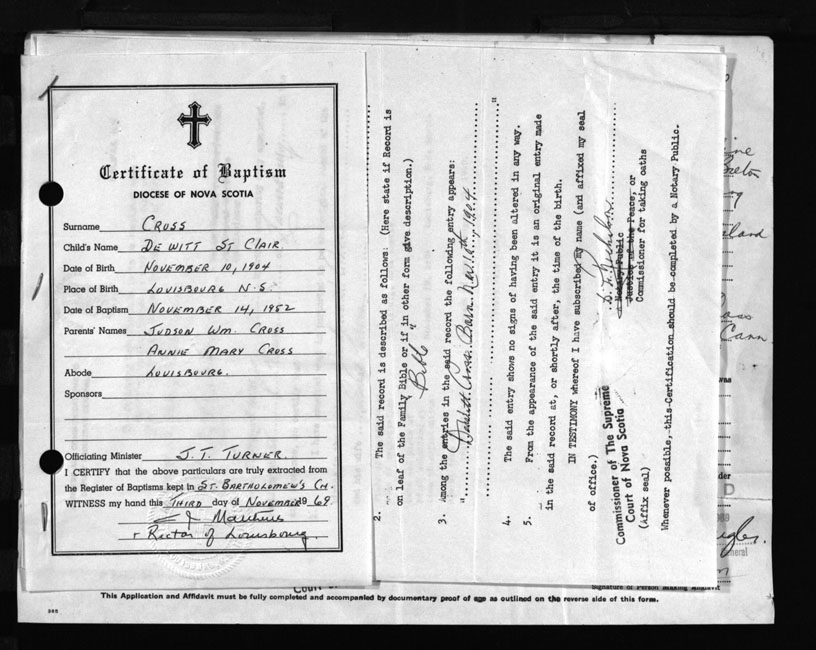 Certificate of Baptism
DIOCESE OF NOVA SCOTIA
Surname CROSS
Child's Name DE WITT ST CLAIR
Date of Birth NOVEMBER 10, 1904
Place of Birth LOUISBOURG N.S.
Date of Baptism NOVEMBER 14, 1952
Parents' Names JUDSON WM. CROSS
ANNIE MARY CROSS
Abode LOUISBOURG.
Sponsors
Officiating Minister J. T. TURNER.
I CERTIFY that the above particulars are truly extracted from
the Register of Baptisms kept in ST. BARTHOLOMEW'S CH.
WITNESS my hand this THIRD day of NOVEMBER 1969.
Rector of Louisbourg.
2. The said record is described as follows: (Here state if Record is
on leaf of the Family Bible or if in other form give description.)
Bible
3. Among the entries in the said record the following entry appears:
Cross. Born. Nov 10th, 1904
4. The said entry shows no signs of having been altered in any way.
5. From the appearance of the said entry it is an original entry made
in the said record at, or shortly after, the time of the birth.
IN TESTIMONY whereof I have subscribed my name (and affixed my seal
of office.)
Notary Public
Justice of the Peace, or
Commissioner for taking oaths
Commissioner of The Supreme
Court of Nova Scotia
(Affix seal)
Whenever possible, this Certification should be completed by a Notary Public.
Signature of Person Making Affidavit
This Application and Affidavit must be fully completed and accompanied by documentary proof of age as outlined on the reverse side of this form.